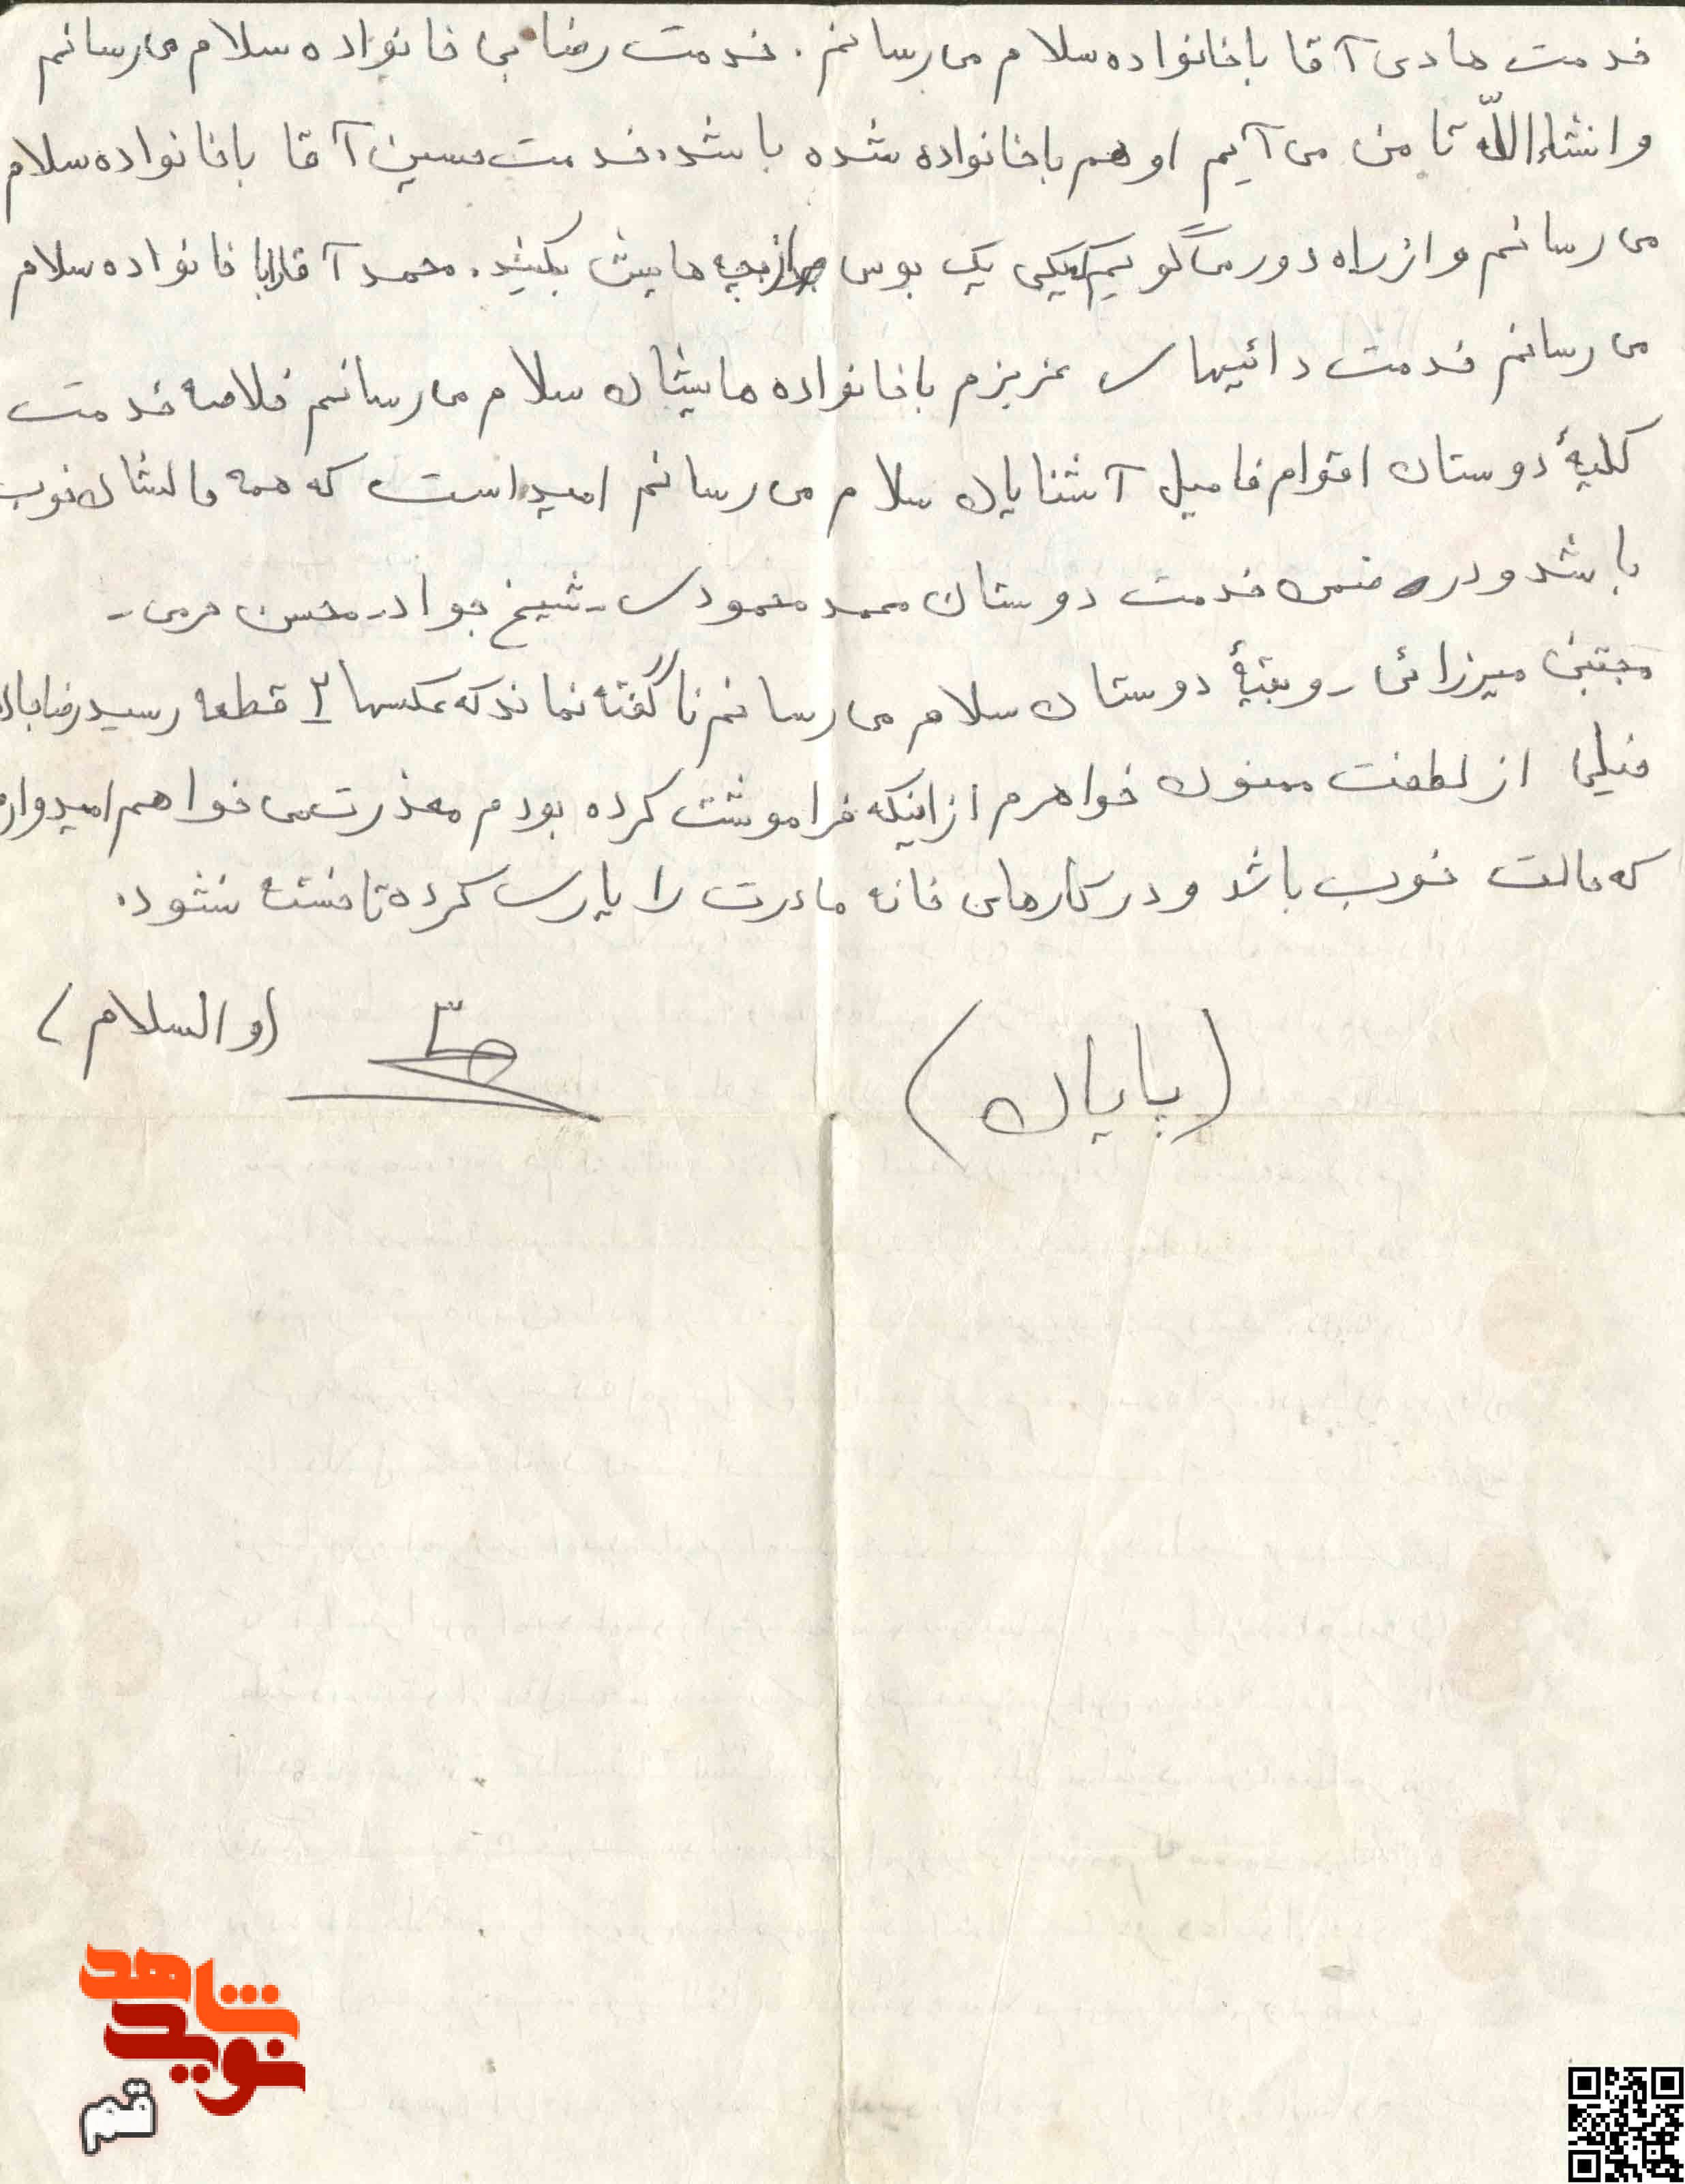 خدمت هادی آقا باخانواده سلام می رسانم . خدمت رضا بی خانواده سلام می رسانم
و انشاءاللّه تا من می آیم او هم باخانواده شده باشد. خدمت حسین آقا باخانواده سلام
می رسانم و از راه دور می گویم یکی یک بوس از بچه هایش بکنید. محمد آقا باخانواده سلام
می رسانم خدمت دائیهای عزیزم باخانواده هایشان سلام می رسانم خلاصه خدمت
کلیهٔ دوستان اقوام فامیل آشنایان سلام می رسانم امید است که همه حالشان خوب
باشد و در ضمن خدمت دوستان محمد محمودی - شیخ جواد - محسن حرمی -
مجتبی میرزائی - و بقیهٔ دوستان سلام می رسانم ناگفته نماند که عکسها ۲ قطعه رسید رضابابا
خیلی از لطفت ممنون خواهرم از اینکه فراموشت کرده بودم معذرت می خواهم امیدوارم
که حالت خوب باشد و در کارهای خانه مادرت را یاری کرده تا خسته نشود.
(والسلام)
(پایان)
شاهد
نوید
قم